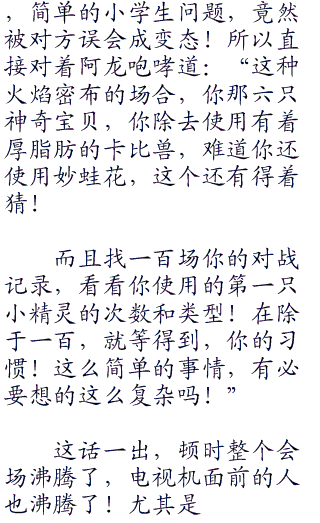 ，简单的小学生问题，竟然
被对方误会成变态！所以直
接对着阿龙咆哮道：“这种
火焰密布的场合，你那六只
神奇宝贝，你除去使用有着
厚脂肪的卡比兽，难道你还
使用妙蛙花，这个还有得着
猜！
而且找一百场你的对战
记录，看看你使用的第一只
小精灵的次数和类型！在除
于一百，就等得到，你的习
惯！这么简单的事情，有必
要想的这么复杂吗！”
这话一出，顿时整个会
场沸腾了，电视机面前的人
也沸腾了！尤其是